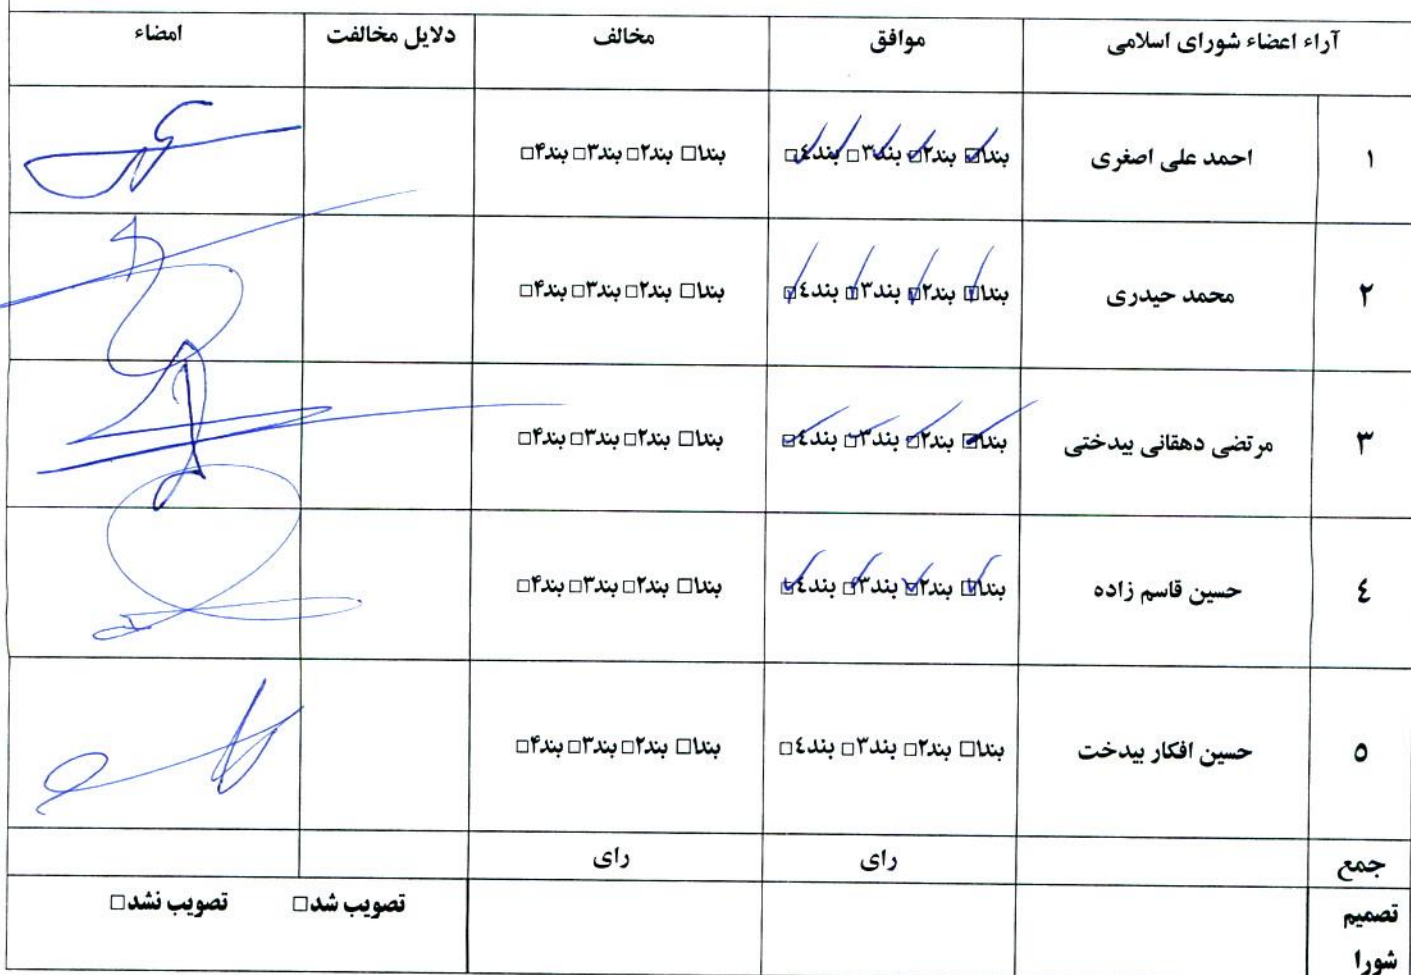 آراء اعضاء شورای اسلامی موافق مخالف دلایل مخالفت امضاء
۱ احمد علی اصغری بند۱☑ بند۲☑ بند۳☑ بند٤☑ بند۱□ بند۲□ بند۳□ بند۴□
۲ محمد حیدری بند۱☑ بند۲☑ بند۳☑ بند٤☑ بند۱□ بند۲□ بند۳□ بند۴□
۳ مرتضی دهقانی بیدختی بند۱☑ بند۲☑ بند۳☑ بند٤☑ بند۱□ بند۲□ بند۳□ بند۴□
٤ حسین قاسم زاده بند۱☑ بند۲☑ بند۳☑ بند٤☑ بند۱□ بند۲□ بند۳□ بند۴□
۵ حسین افکار بیدخت بند۱□ بند۲□ بند۳□ بند٤□ بند۱□ بند۲□ بند۳□ بند۴□
جمع رای رای
تصمیم تصویب شد□ تصویب نشد□
شورا